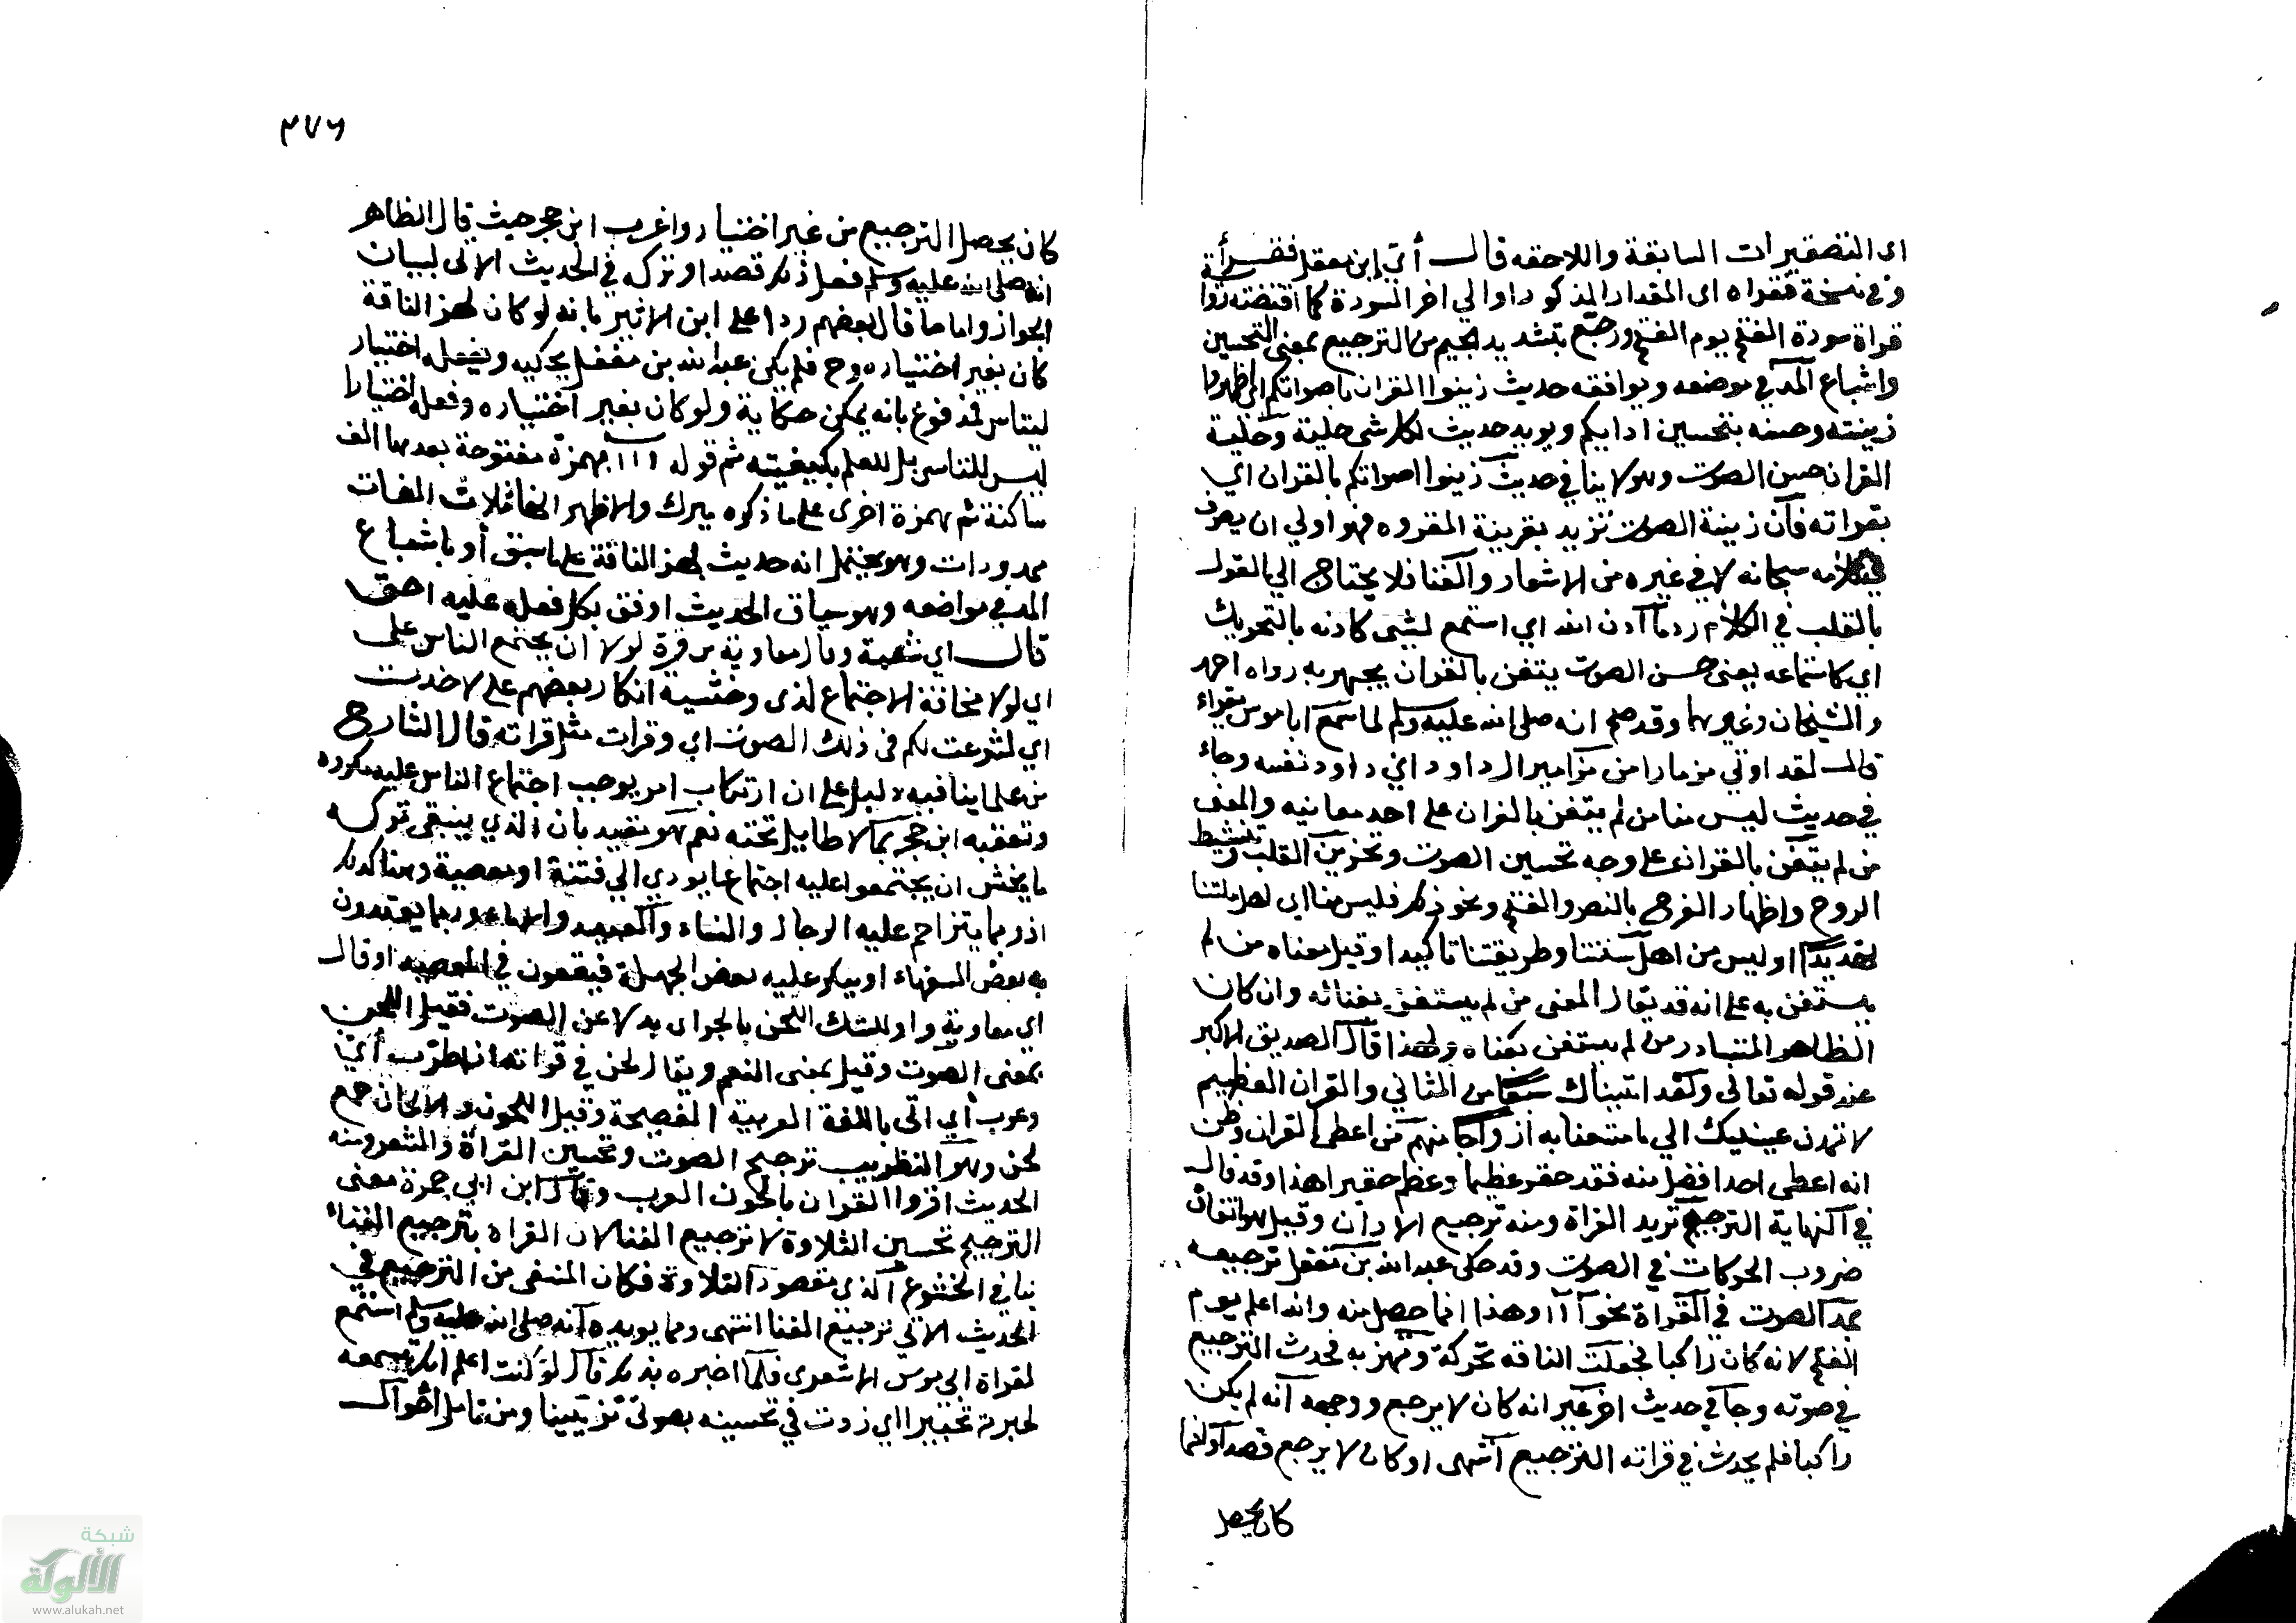 اى التقصيرات السابقة واللاحقه قال أي ابن مغفل فقرأ
وفي نسخة فقراه اى المقدار المذكور او الي اخر السورة كما اقتضته رواية
قراة سورة الفتح يوم الفتح ورجّع بتشديد الجيم من الترجيع بمعنى التحسين
واشباع المد في موضعه ويوافقه حديث زينوا القران باصواتكم اي اظهروا
زينته وحسنه بتحسين ادايكم ويويد حديث لكل شي حلية وحلية
القران حسن الصوت وهو لا ينافي حديث زينوا اصواتكم بالقران اي
بقراته فان زينة الصوت تزيد بقرينة المقروه فهو اولي ان يصرف
في كلامه سبحانه لا في غيره من الاشعار والغنا فلا يحتاج الي القول
بالقلب في الكلام وما اذن الله اي استمع لشى كاذنه بالتحريك
اي كاستماعه يعنى حسن الصوت يتغن بالقران يجهر به رواه احمد
والشيخان وغيرهما وقد صح انه صلى الله عليه وسلم لما سمع ابا موسى يقراء
قال لقد اوتي مزمارا من مزامير ال داود اي داود نفسه وجاء
في حديث ليس منا من لم يتغن بالقران على احد معانيه والمعنى
من لم يتغن بالقران على وجه تحسين الصوت وتحزين القلب وتنشيط
الروح واظهار الفرح بالنصر والفتح ونحو ذلك فليس منا اي اهل ملتنا
تهديدا او ليس من اهل سنتنا وطريقتنا تاكيدا وقيل معناه من لم
يستغن به على انه قد يقال المعنى من لم يستغن بغنائه وان كان
الظاهر المتبادر من لم يستغن بغناه ولهذا قال الصديق الاكبر
عند قوله تعالى ولقد اتيناك سبعا من المثاني والقران العظيم
لا تمدن عينيك الي ما متعنا به ازواجا منهم من اعطى القران وظن
انه اعطى احدا فضل منه فقد حقر عظيما وعظم حقيرا هذا وقد قال
في النهاية الترجيع ترديد القراة ومنه ترجيع الاذان وقيل هو تقارب
ضروب الحركات في الصوت وقد حكى عبد الله بن مغفل ترجيعه
بمد الصوت في القراة نحو آ آ آ وهذا انما حصل منه والله اعلم يوم
الفتح لانه كان راكبا فجعلت الناقه تحركة وتهز به فحدث الترجيع
في صوته وجا في حديث اخر غير انه كان لا يرجع ووجهه انه لم يكن
راكبا فلم يحدث في قراته الترجيع انتهى او كان لا يرجع قصدا وانما
كان يحصل
٣٧٦
كان يحصل الترجيع من غير اختيار واغرب ابن حجر حيث قال الظاهر
انه صلى الله عليه وسلم فعل ذلك قصدا وتركه في الحديث الاتى لبيان
الجواز واما ما قال بعضهم ردا على ابن الاثير بانه لو كان لهز الناقة
كان بغير اختياره وح فلم يكن عبد الله بن مغفل يحكيه ويفعله اختيار
ليتاس فمدفوع بانه يمكن حكاية ولو كان بغير اختياره وفعله اختيارا
ليس للتاسى بل للعلم بكيفيته ثم قوله ااا بهمزة مفتوحة بعدها الف
ساكنة ثم همزة اخرى على ما ذكره ميرك والاظهر انها ثلاث الفات
ممدودات وهو يحتمل انه حديث لهز الناقة على ما سبق أو باشباع
المد في مواضعه وهو سياق الحديث اوفق بكل فعله عليه احق
قال اي شعبة وقال معاوية بن قرة لولا ان يجتمع الناس على
اي لولا مخافة الاجتماع لدى وخشية انكار بعضهم على لاخذت
اي لشرعت لكم في ذلك الصوت اي وقرات مثل قراته قال الشارح
من علمائنا فيه دليل على ان ارتكاب امر يوجب اجتماع الناس عليه مكروه
وتعقبه ابن حجر بما لا طايل تحته نعم هو مقيد بان الذي ينبغى تركه
ما يخش ان يجتمعوا عليه اجتماعا يودي الي فتنة او معصية وهنا كذلك
اذ ربما يتزاحم عليه الرجال والنساء والعبيد والاماء وربما يقتدون
به بعض السفهاء او ينكر عليه بعض الجهلة فيقعون في المعصيه او قال
اى معاوية واو للشك اللحن بالجر اى بدلا عن الصوت فقيل اللحن
بمعنى الصوت وقيل بمعنى النغم ويقال لحن في قراته اذا طرّب أي
وعرب أي اتى باللغة العربية الفصيحة وقيل اللحون والالحان جمع
لحن وهو التطريب ترجيح الصوت وتحسين القراة والشعر ومنه
الحديث اقروا القران بلحون العرب وقال ابن ابي جمرة معنى
الترجيح تحسين التلاوة لا ترجيع الغنا لان القراه بترجيع الغناء
ينافي الخشوع الذى مقصود التلاوة فكان المنفى من الترجيع في
الحديث الاتي ترجيع الغنا انتهى ومما يويده انه صلى الله عليه وسلم استمع
لقراة ابي موسى الاشعرى فلما اخبره بذلك قال لو كنت اعلم انك تسمعه
لحبرته تحبيرا اي زدت في تحسينه بصوتي تزيينا ومن تامل احوال
شبكة
الألوكة
www.alukah.net